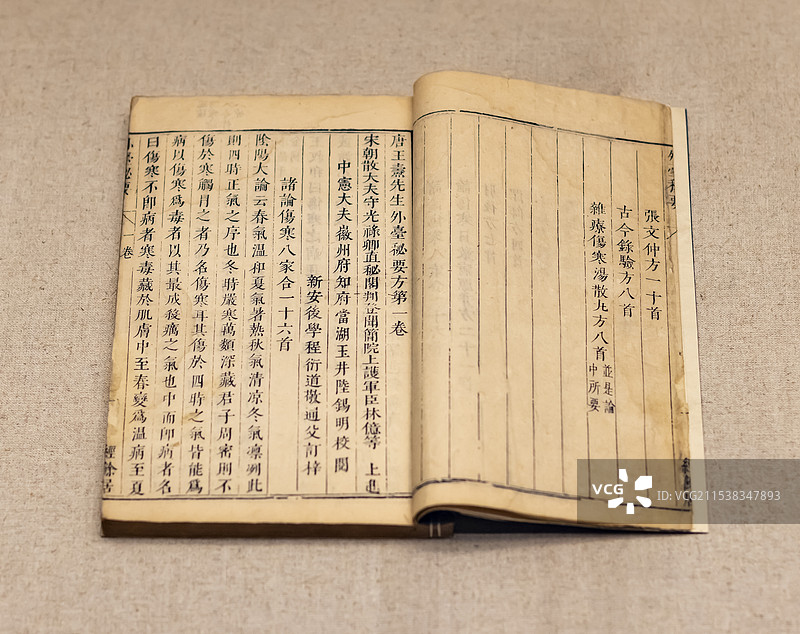 張文仲方一十首
古今錄驗方八首
雜療傷寒湯散丸方八首 並是論中所要
唐王燾先生外臺祕要方第一卷
宋朝散大夫守光祿卿直秘閣判登聞簡院上護軍臣林億等 上進
中憲大夫徽州府知府當湖玉井陸錫明校閱
新安後學程衍道敬通父訂梓
諸論傷寒八家合一十六首
陰陽大論云春氣溫和夏氣暑熱秋氣清凉冬氣凛冽此
則四時正氣之序也冬時嚴寒萬類深藏君子周密則不
傷於寒觸冒之者乃名傷寒耳其傷於四時之氣皆能爲
病以傷寒爲毒者以其最成殺癘之氣也中而卽病者名
曰傷寒不卽病者寒毒藏於肌膚中至春變爲溫病至夏
一卷
經餘居
vcg
VCG.COM
ID:VCG211538347893